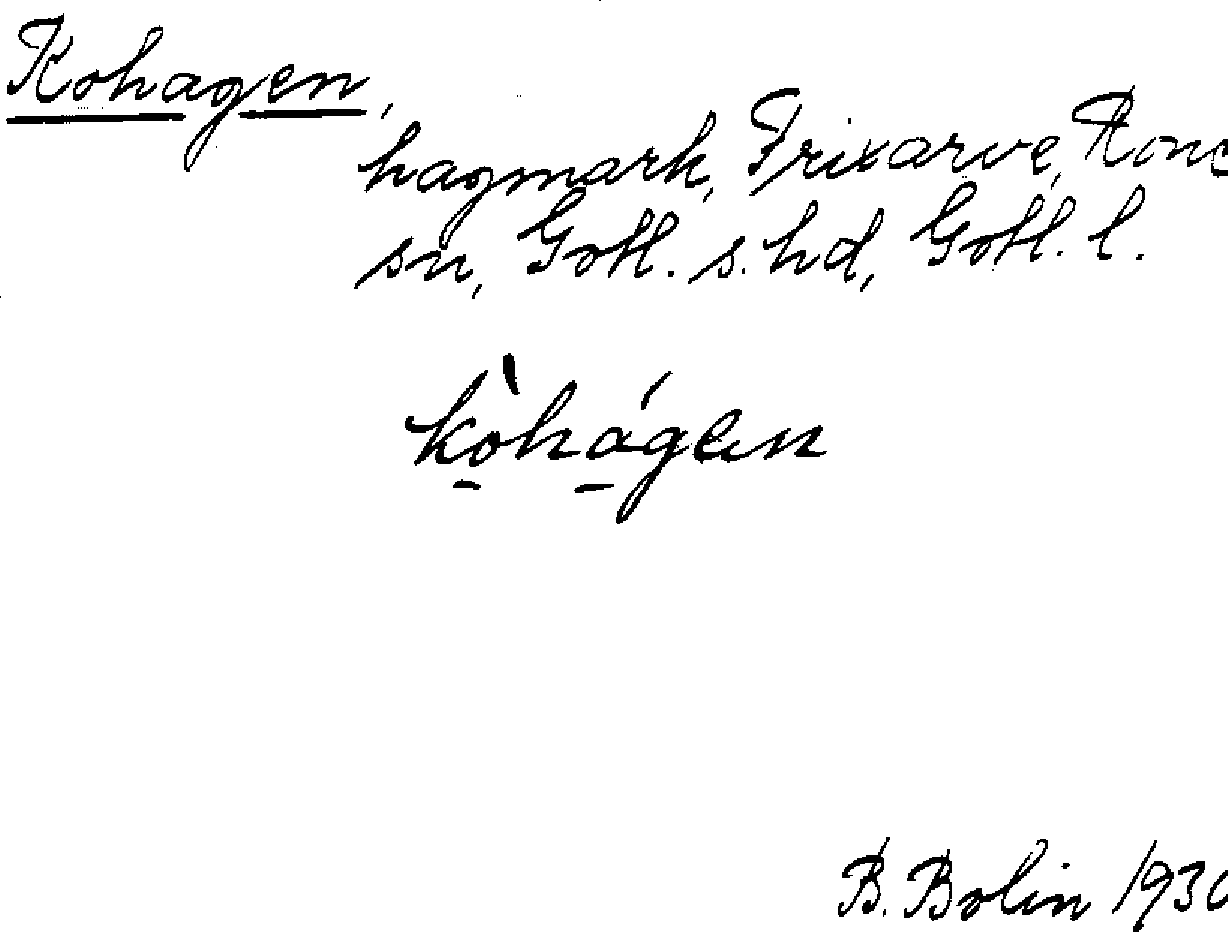 Kohagen,
hagmark, Frixarve, Rone
sn, Gotl. s. hd, Gotl. l.
kòhágen
B. Bolin 1930